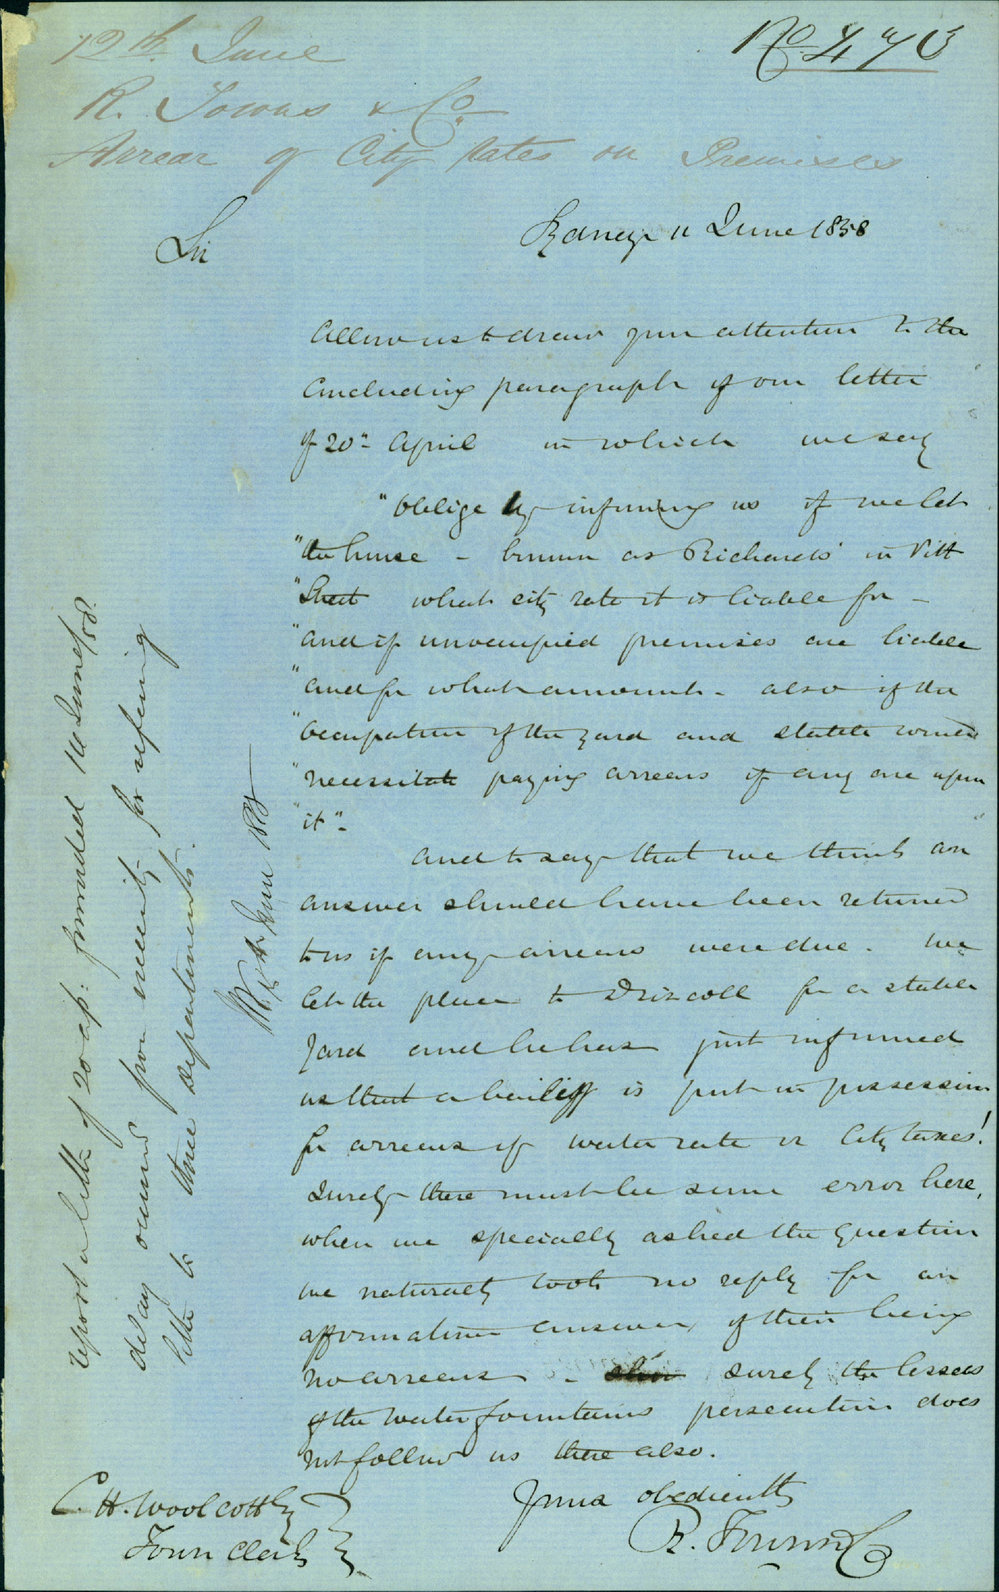 No. 470
12th. June
R. Towns & Co.
Arrear of City Rates on Premises
Sydney 11 June 1858
Sir
Allow us to draw your attention to the
Concluding paragraph of our letter
of 20th April in which we say
"Oblige by informing us if we let
"the house - known as Richards' in Pitt
"Street what city rate it is liable for -
"and if unoccupied premises are liable
"and for what amount - also if the
"occupation of the yard and stable would
"necessitate paying arrears if any are upon
"it".
And to say that we think an
answer should have been returned
to us if any arrears were due. We
let the place to Driscoll for a stable
Yard and he has just informed
us that a bailiff is put in possession
for arrears of water rate or City taxes!
Surely there must be some error here,
when we specially asked the question
we naturally took no reply for an
affirmative answer, of their being
no arrears - surely the lessees
of the Water fountains persecution does
not follow us there also.
Yours obediently
R. Towns & Co
C. H. Woolcott Esq
Town Clerk
report a letter of 20 ap: forwarded 14 June/58.
delay occurred from necessity for refering
letter to three departments.
14th June 1858